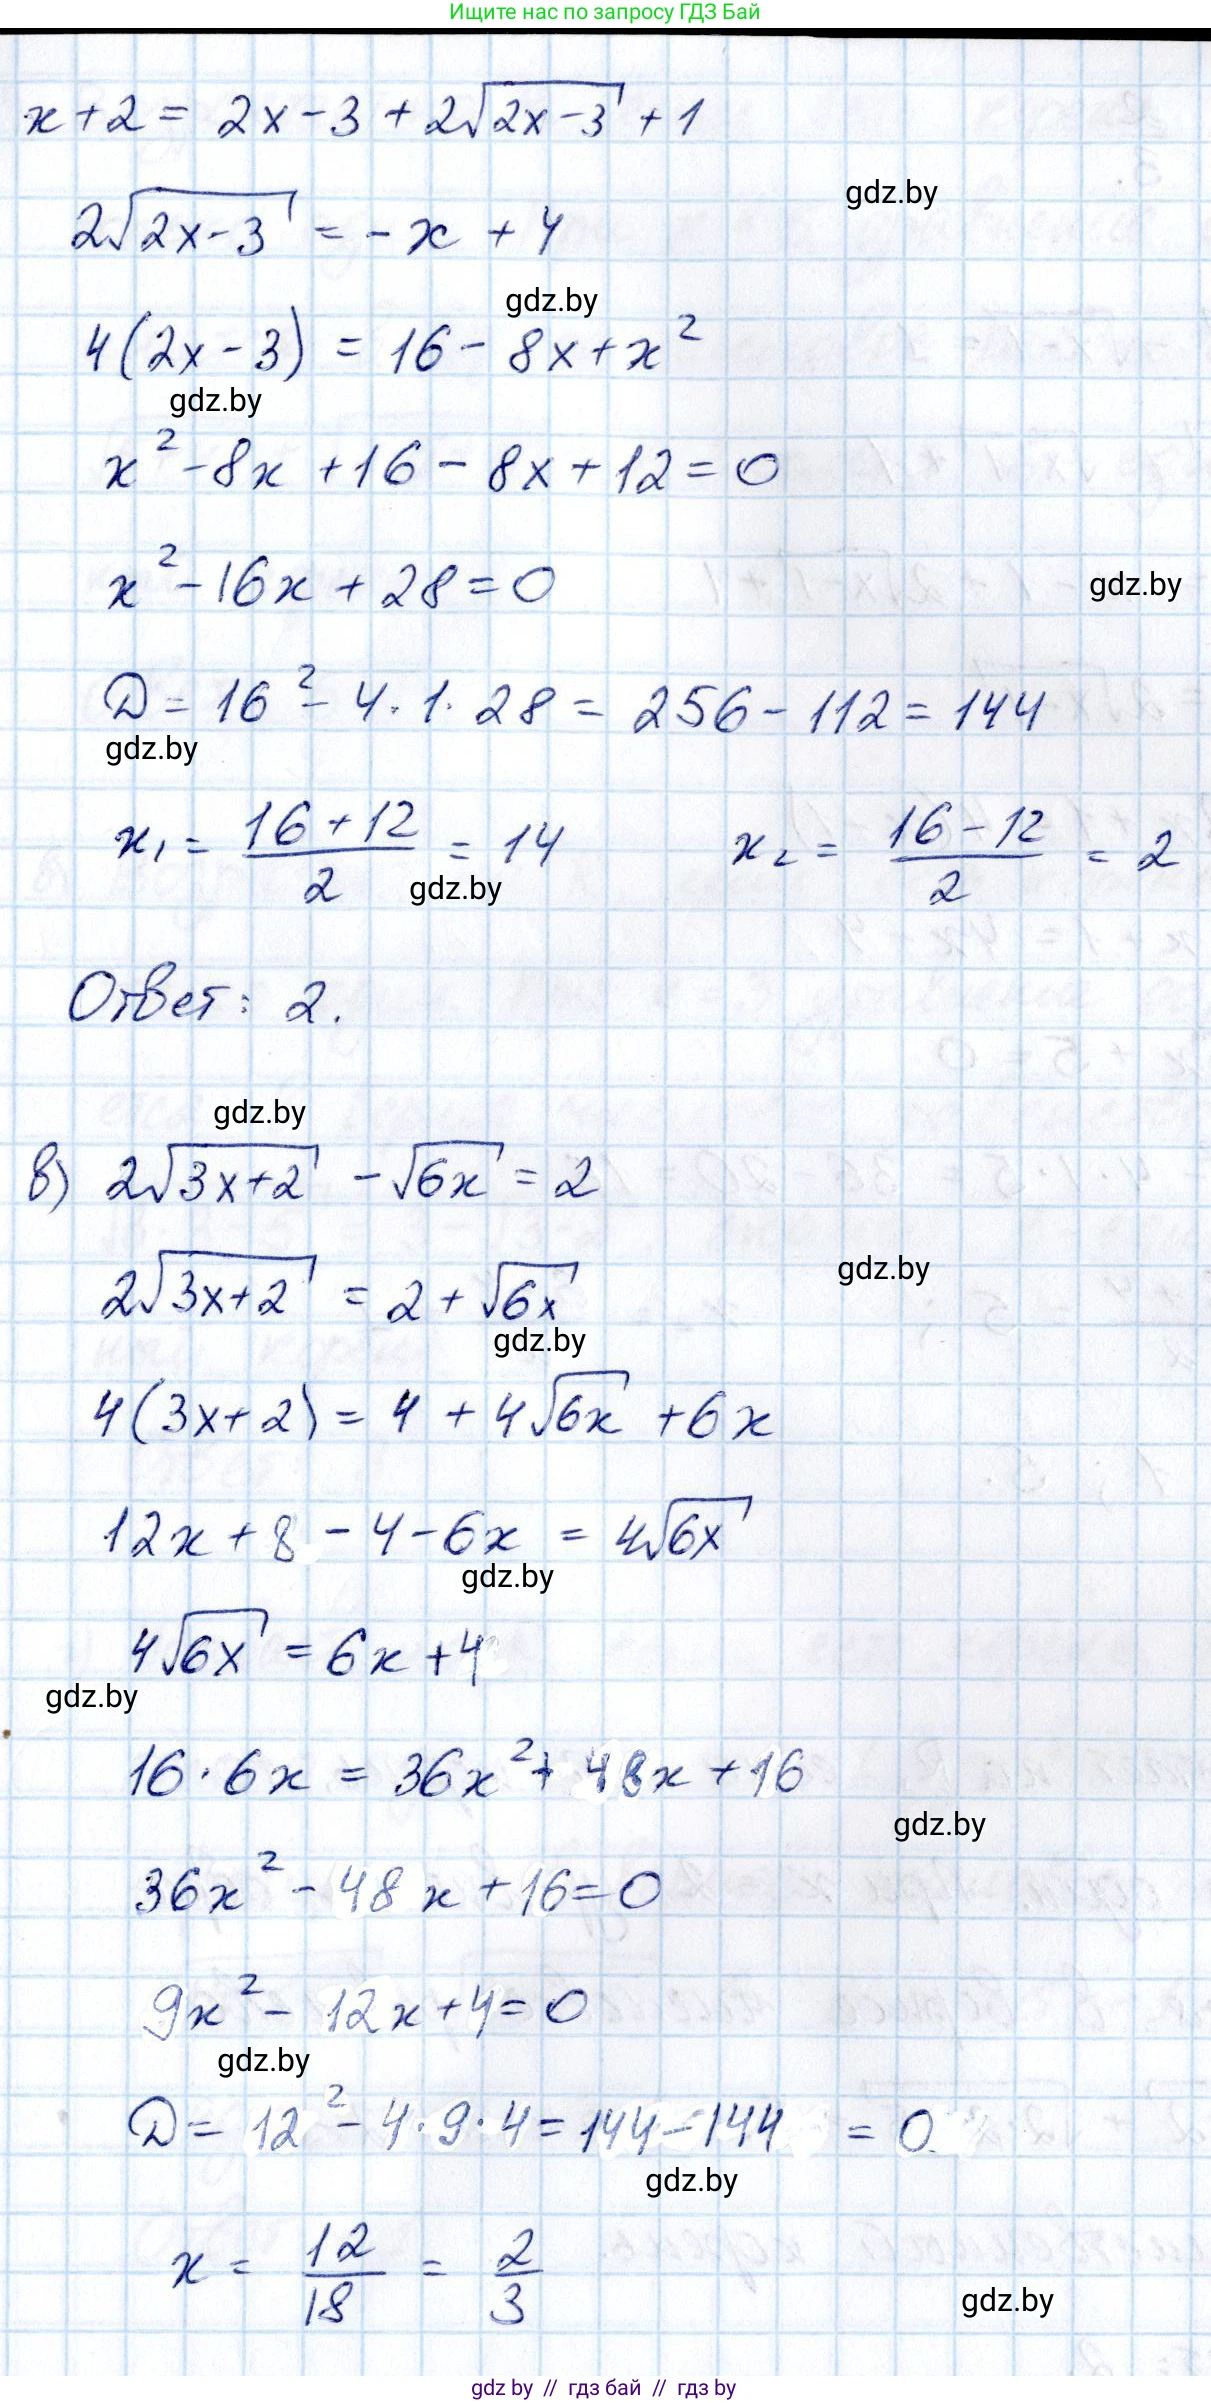 Ищите нас по запросу ГДЗ Бай
x + 2 = 2x - 3 + 2√(2x - 3) + 1
gdz.by
2√(2x - 3) = -x + 4
gdz.by
4(2x - 3) = 16 - 8x + x²
gdz.by
x² - 8x + 16 - 8x + 12 = 0
x² - 16x + 28 = 0
gdz.by
D = 16² - 4 · 1 · 28 = 256 - 112 = 144
gdz.by
x₁ = (16 + 12)/2 = 14 x₂ = (16 - 12)/2 = 2
gdz.by
Ответ: 2.
gdz.by
в) 2√(3x + 2) - √(6x) = 2
gdz.by
2√(3x + 2) = 2 + √(6x)
gdz.by
4(3x + 2) = 4 + 4√(6x) + 6x
12x + 8 - 4 - 6x = 4√(6x)
gdz.by
4√(6x) = 6x + 4
gdz.by
16 · 6x = 36x² + 48x + 16
gdz.by
36x² - 48x + 16 = 0
9x² - 12x + 4 = 0
gdz.by
D = 12² - 4 · 9 · 4 = 144 - 144 = 0.
gdz.by
x = 12/18 = 2/3
gdz.by
gdz by // гдз бай // гдз by